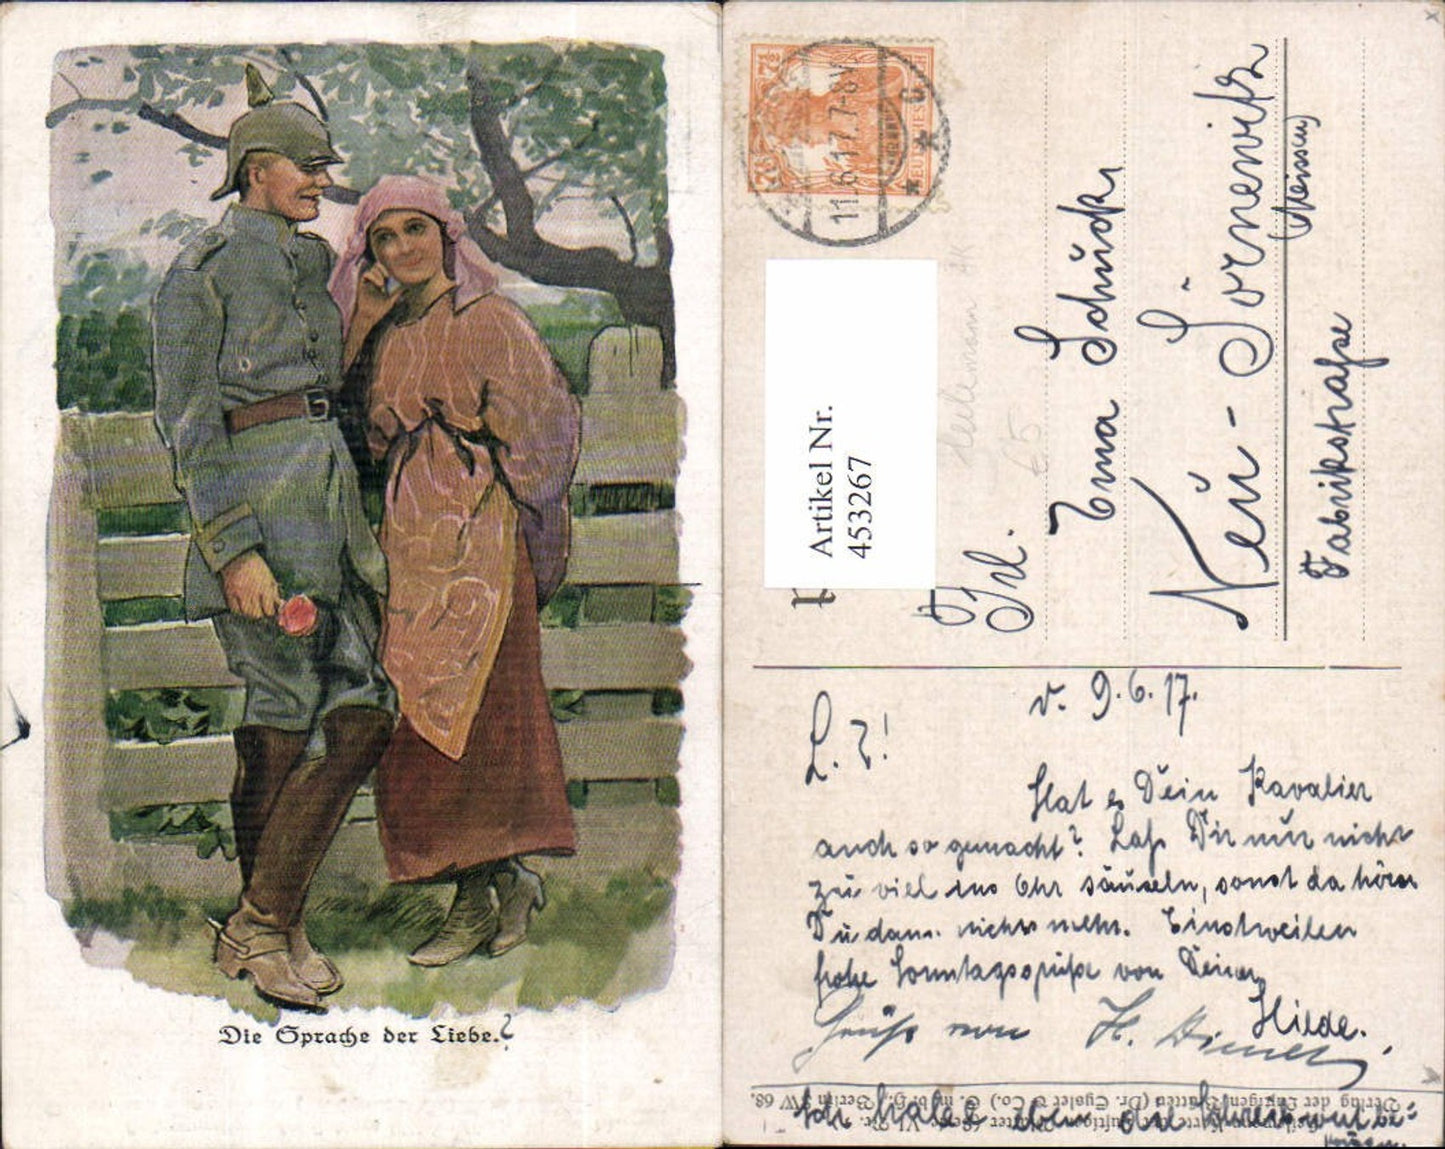 Die Sprache der Liebe.?
11.6.17.7-8V.
Artikel Nr.
453267
Frl.
Erna Schück
Neu-Sörnewitz
(Meissen)
Fabrikstraße
d. 9.6.17.
L. E!
Hat es Dein Kavalier
auch so gemacht? Laß Dir nur nicht
zu viel ins Ohr säuseln, sonst da hörst
Du dann nichts mehr. Einstweilen
frohe Sonntagsgrüße von Deiner
Hilde.
Gruß von H.
Verlag der Lustigen Blätter (Dr. Eysler & Co.) G. m. b. H., Berlin SW 68.
Ich habe eben die